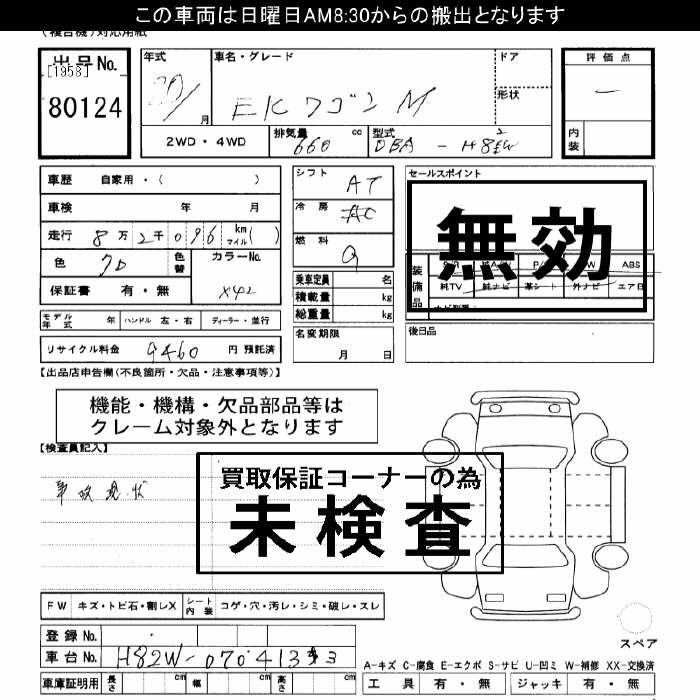 この車両は日曜日AM8:30からの搬出となります
(複合機)対応用紙
出品No.
[1958]
80124
年式
20/
月
車名・グレード
EKワゴン M
ドア
形状
評価点
内装
2WD・4WD
排気量 660 cc
型式 DBA - H82W
車歴 自家用・( )
車検 年 月
走行 8万2千096 km マイル( )
色
色替
カラーNo.
X42
保証書 有・無
モデル年式 年 ハンドル 左・右 ディーラー・並行
リサイクル料金 9460 円 預託済
シフト AT
冷房 AC
燃料 G
乗車定員 名
積載量 kg
総重量 kg
名変期限
月 日
セールスポイント
無効
装備品
ABS
純TV 純ナビ 革シート 外ナビ エアB
後日品
【出品店申告欄(不良箇所・欠品・注意事項等)】
機能・機構・欠品部品等は
クレーム対象外となります
【検査員記入】
事故現状
買取保証コーナーの為
未検査
FW キズ・トビ石・割レX シート内装 コゲ・穴・汚レ・シミ・破レ・スレ
登録No.
車台No.
車庫証明用 長さ cm 幅 cm 高さ cm
スペア
A-キズ C-腐食 E-エクボ S-サビ U-凹ミ W-補修 XX-交換済
工具 有・無 ジャッキ 有・無